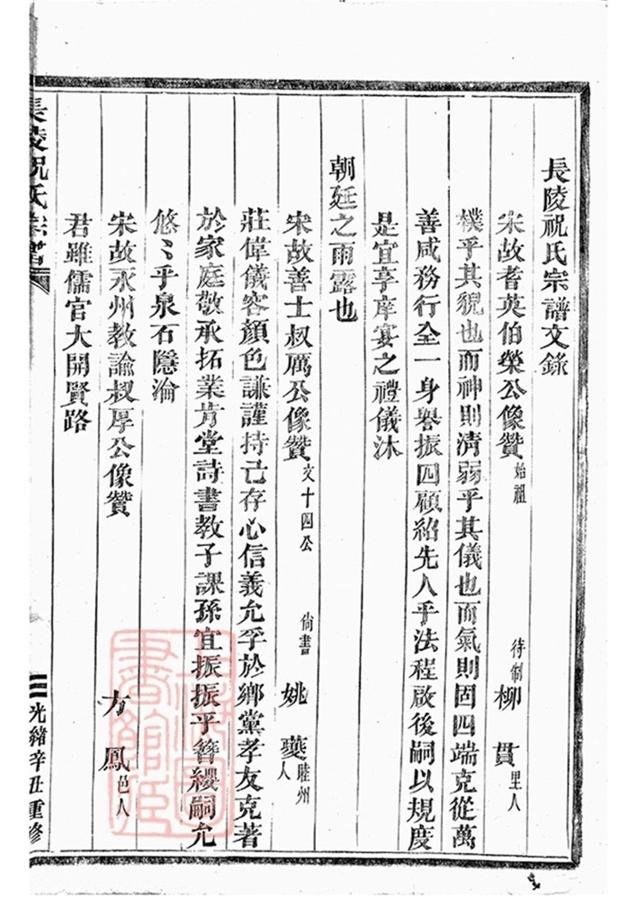 長陵祝氏宗譜文錄
宋故耆英伯榮公像贊 始祖 待制 柳貫 里人
樸乎其貌也而神則清弱乎其儀也而氣則固四端克從萬
善咸務行全一身譽振四顧紹先人乎法程啟後嗣以規度
是宜享庠宴之禮儀沐
朝廷之雨露也
宋故善士叔厲公像贊 文十四公 尙書 姚夔 睦州人
莊偉儀容顏色謙謹持己存心信義允孚於鄉黨孝友克著
於家庭敬承拓業肯堂詩書教子課孫宜振振乎簪纓嗣允
悠〻乎泉石隱淪
宋故永州教諭叔厚公像贊 方鳳 邑人
君雖儒官大開賢路
長陵祝氏宗譜
三 光緒辛丑重修